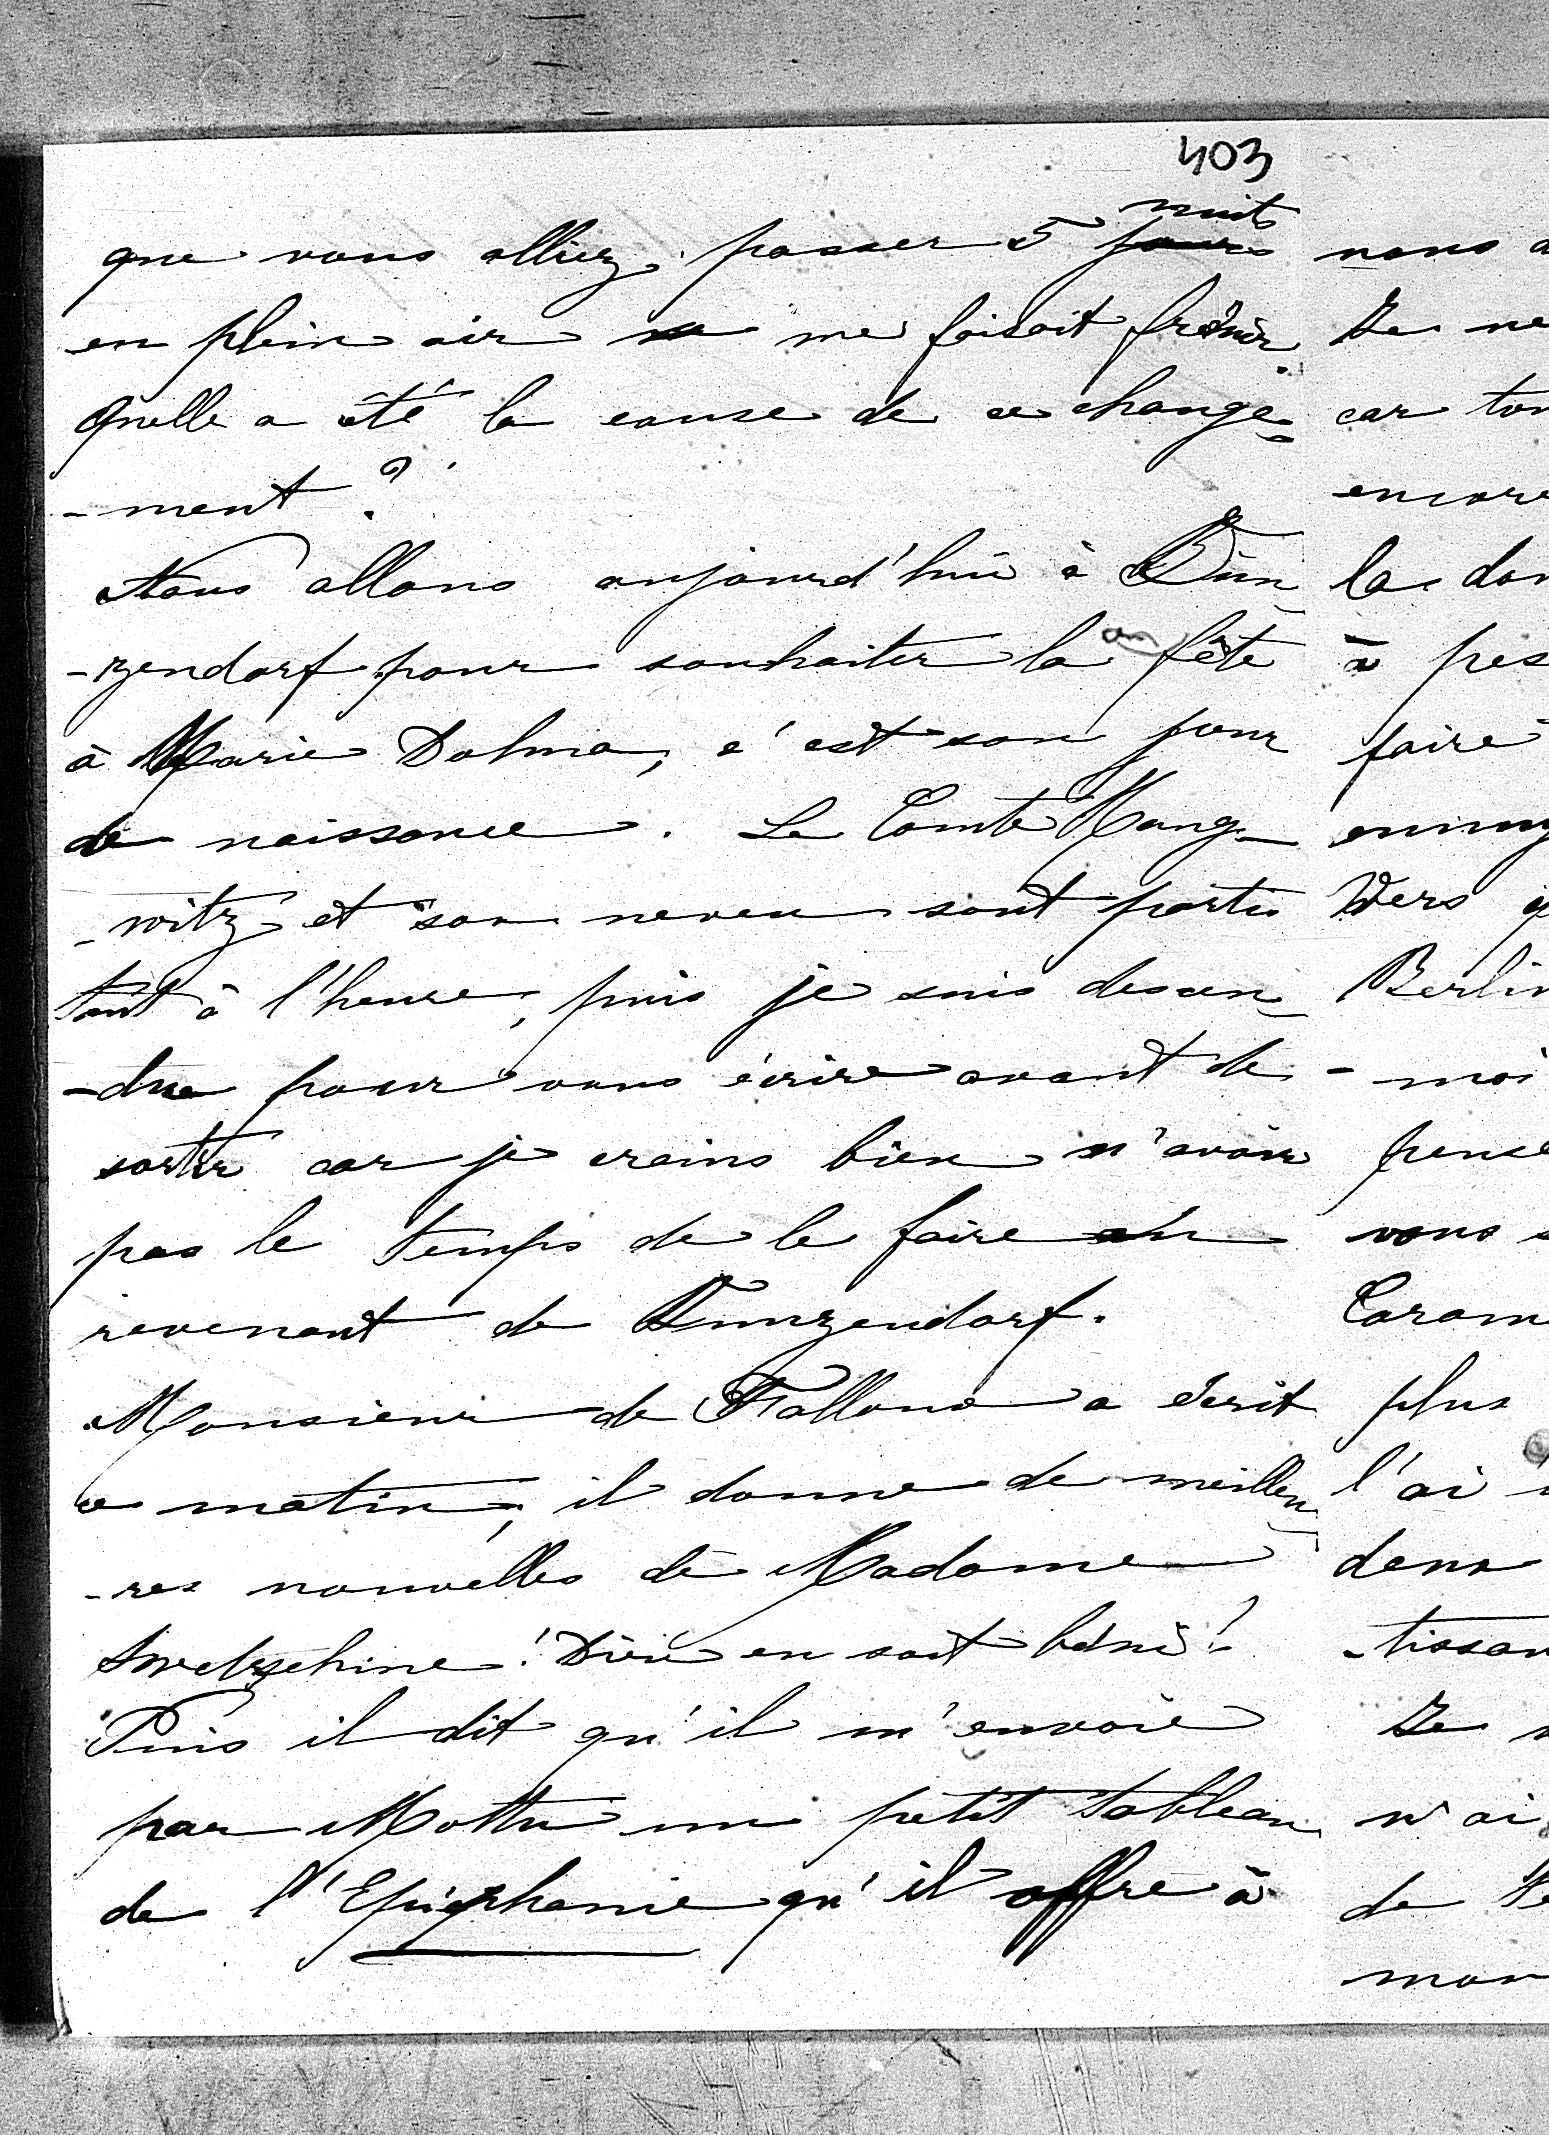 403
nuits
que vous alliez passer 5 jours
en plein air me faisait frémir.
Quelle a été la cause de ce change-
-ment ?
Nous allons aujourd'hui à Dün
-zendorf pour souhaiter la fête
à Marie Dolma, c'est son jour
de naissance. Le Comte Maug-
-witz et son neveu sont partis
tout à l'heure, puis je suis descen-
-due pour vous écrire avant de
sortir car je crains bien n'avoir
pas le temps de le faire en
revenant de Dunzendorf.
Monsieur de Falloux a écrit
ce matin, il donne de meilleu
-res nouvelles de Madame
Swetzchine ! Dieu en soit béni !
Puis il dit qu'il m'envoie
par Mottu un petit tableau
de l'Epiphanie qu'il offre à
nous
Je ne
car
encore
la
à
faire
Vers
Berlin
- moi
vous
plus
l'ai
dans
Je
n'ai
de